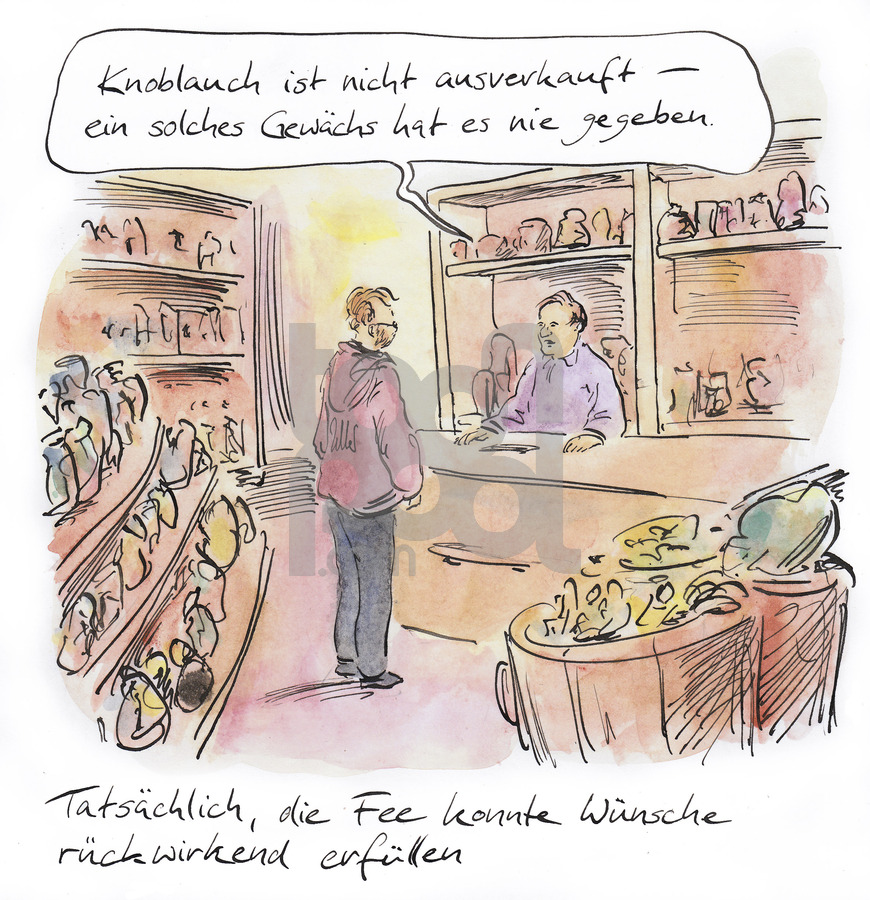 Knoblauch ist nicht ausverkauft –
ein solches Gewächs hat es nie gegeben.
Tatsächlich, die Fee konnte Wünsche
rückwirkend erfüllen